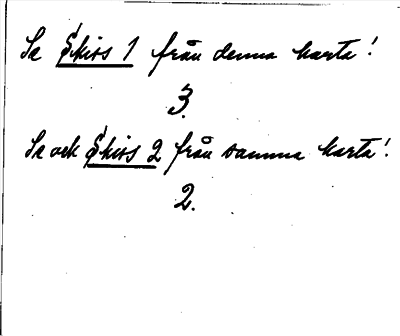 Se Skiss 1 från denna karta!
3.
Se och Skiss 2 från samma karta!
2.